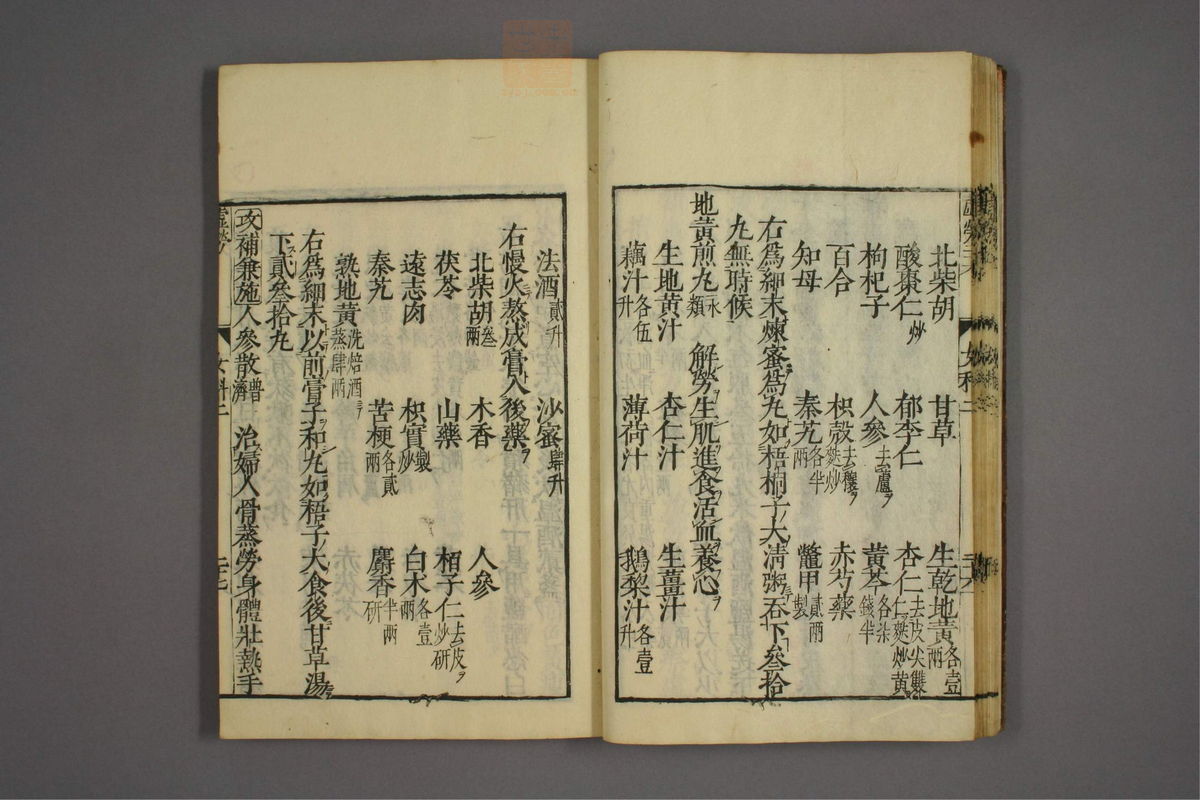 北柴胡 甘草 生乾地黄各壹兩
酸棗仁炒 郁李仁 杏仁去皮尖雙仁麩炒黄
枸杞子 人參去蘆ヲ 黄芩各柒錢半
百合 枳殻去穰ヲ麩炒 赤芍藥
知母 秦艽各半兩 鼈甲貳兩製
右爲細末煉蜜爲丸如梧桐子大清粥呑下叄拾
丸無時候
地黄煎丸永類 解勞生肌進食活血養心
生地黄汁 杏仁汁 生薑汁
藕汁各伍升 薄荷汁 鵝梨汁各壹升
法酒貳升 沙蜜肆升
右慢火熬成膏入後藥
北柴胡叄兩 木香 人參
茯苓 山藥 栢子仁去皮ヲ炒研
遠志肉 枳實製炒 白朮各壹兩
秦艽 苦梗各貳兩 麝香半兩研
熟地黄洗焙酒蒸肆兩
右爲細末以前膏子和丸如梧子大食後甘草湯
下貳叄拾丸
攻補兼施人參散普濟 治婦人骨蒸勞身體壯熱手
女科二